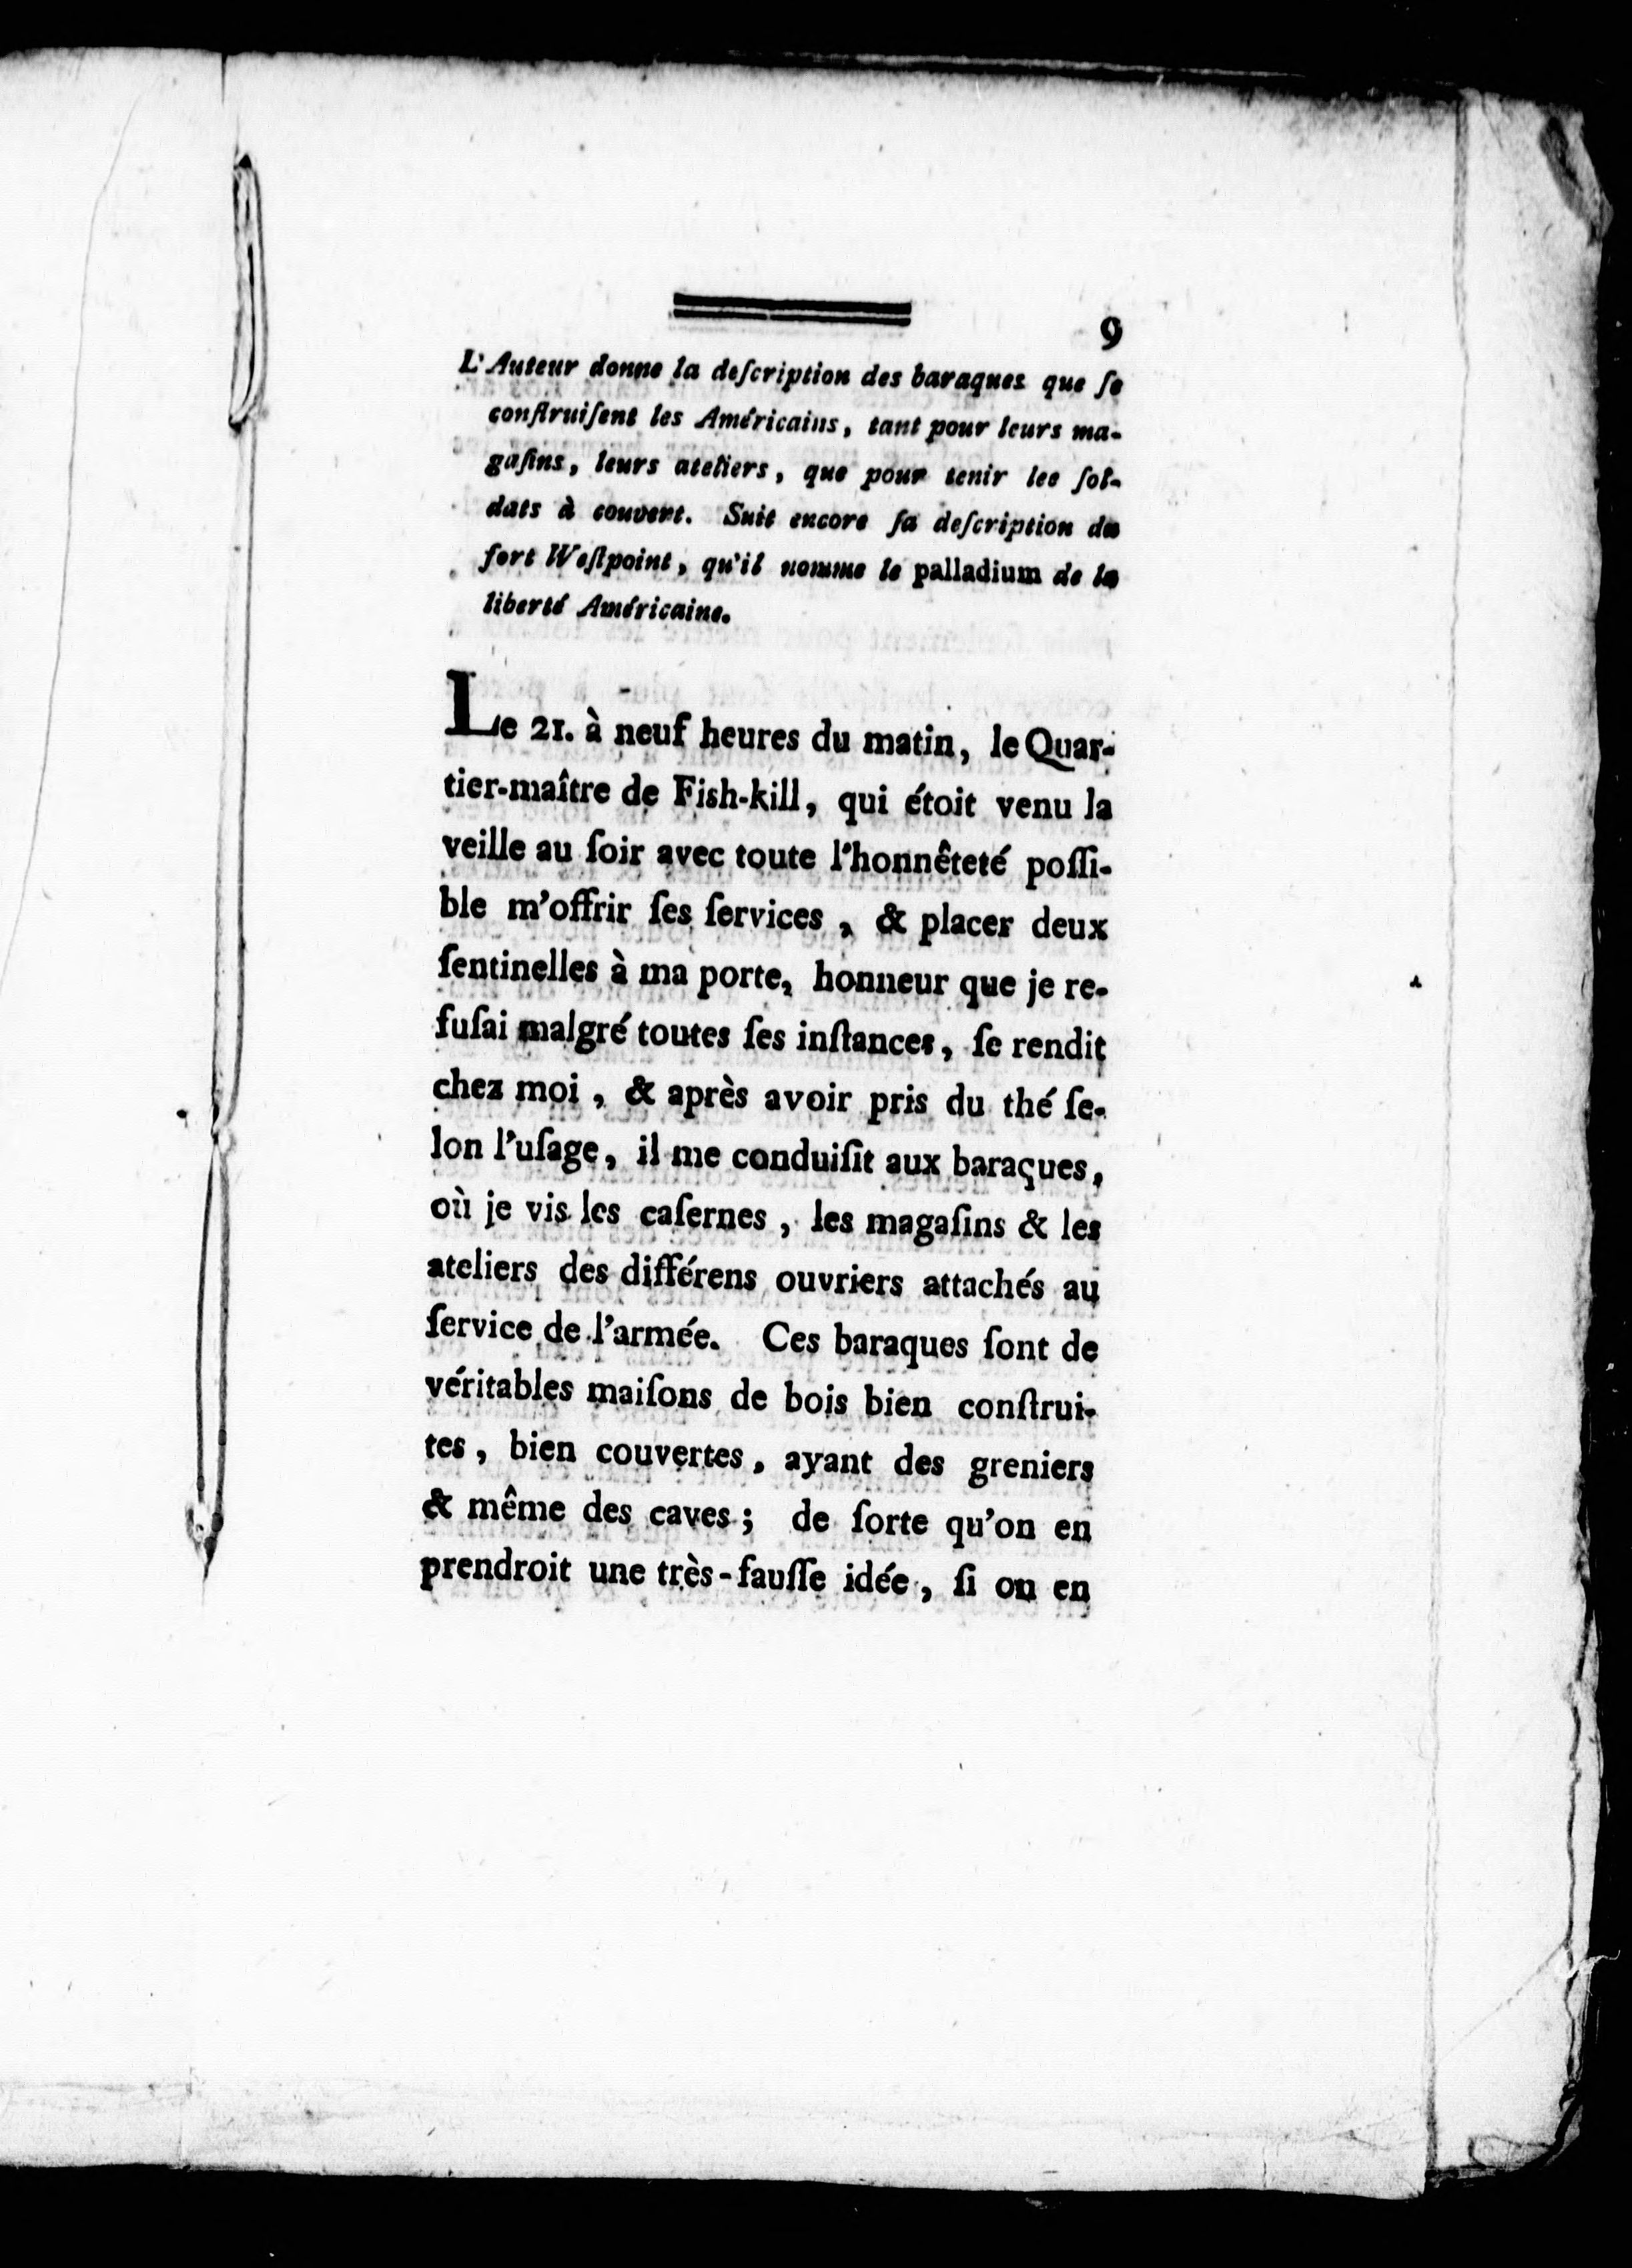 9
L'Auteur donne la deſcription des baraques que ſe
conſtruiſent les Américains, tant pour leurs ma-
gaſins, leurs ateliers, que pour tenir les ſol-
dats à couvert. Suit encore ſa deſcription du
fort Weſtpoint, qu'il nomme le palladium de la
liberté Américaine.
Le 21. à neuf heures du matin, le Quar-
tier-maître de Fish-kill, qui étoit venu la
veille au ſoir avec toute l'honnêteté poſſi-
ble m'offrir ſes ſervices, & placer deux
ſentinelles à ma porte, honneur que je re-
fuſai malgré toutes ſes inſtances, ſe rendit
chez moi, & après avoir pris du thé ſe-
lon l'uſage, il me conduiſit aux baraques,
où je vis les caſernes, les magaſins & les
ateliers des différens ouvriers attachés au
ſervice de l'armée. Ces baraques ſont de
véritables maiſons de bois bien conſtrui-
tes, bien couvertes, ayant des greniers
& même des caves; de ſorte qu'on en
prendroit une très-fauſſe idée, ſi on en